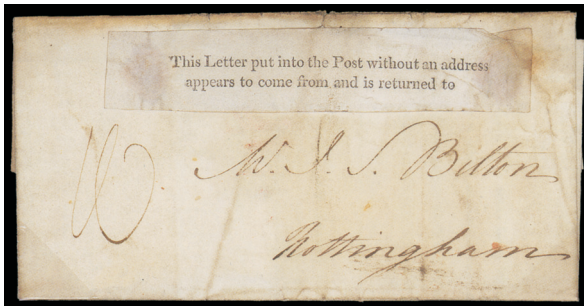 This Letter put into the Post without an address
appears to come from and is returned to
10
Mr. J. S. Bilton
Nottingham